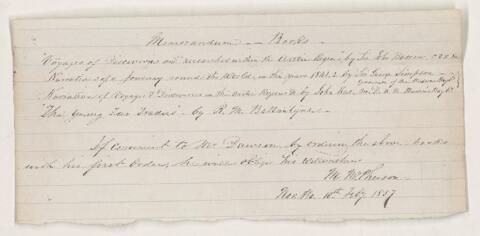 Memorandum — Books —
"Voyages of Discovery and researches within the Arctic Regions" by Sir John Barrow
Narrative of a journey round the World, in the years 1841, 2 by Sir George Simpson —
Governor of the Hudson's Bay Co
Narrative of Voyages & Discoveries in the Arctic Regions &c by John Rae, M.D. a Hudson's Bay
"The Young Fur Traders" by R. M. Ballantyne —
If convenient to Mr Dawson, by ordering the above books
with his first Order, he will oblige his wellwisher
M. McPherson
10th Feby 1857